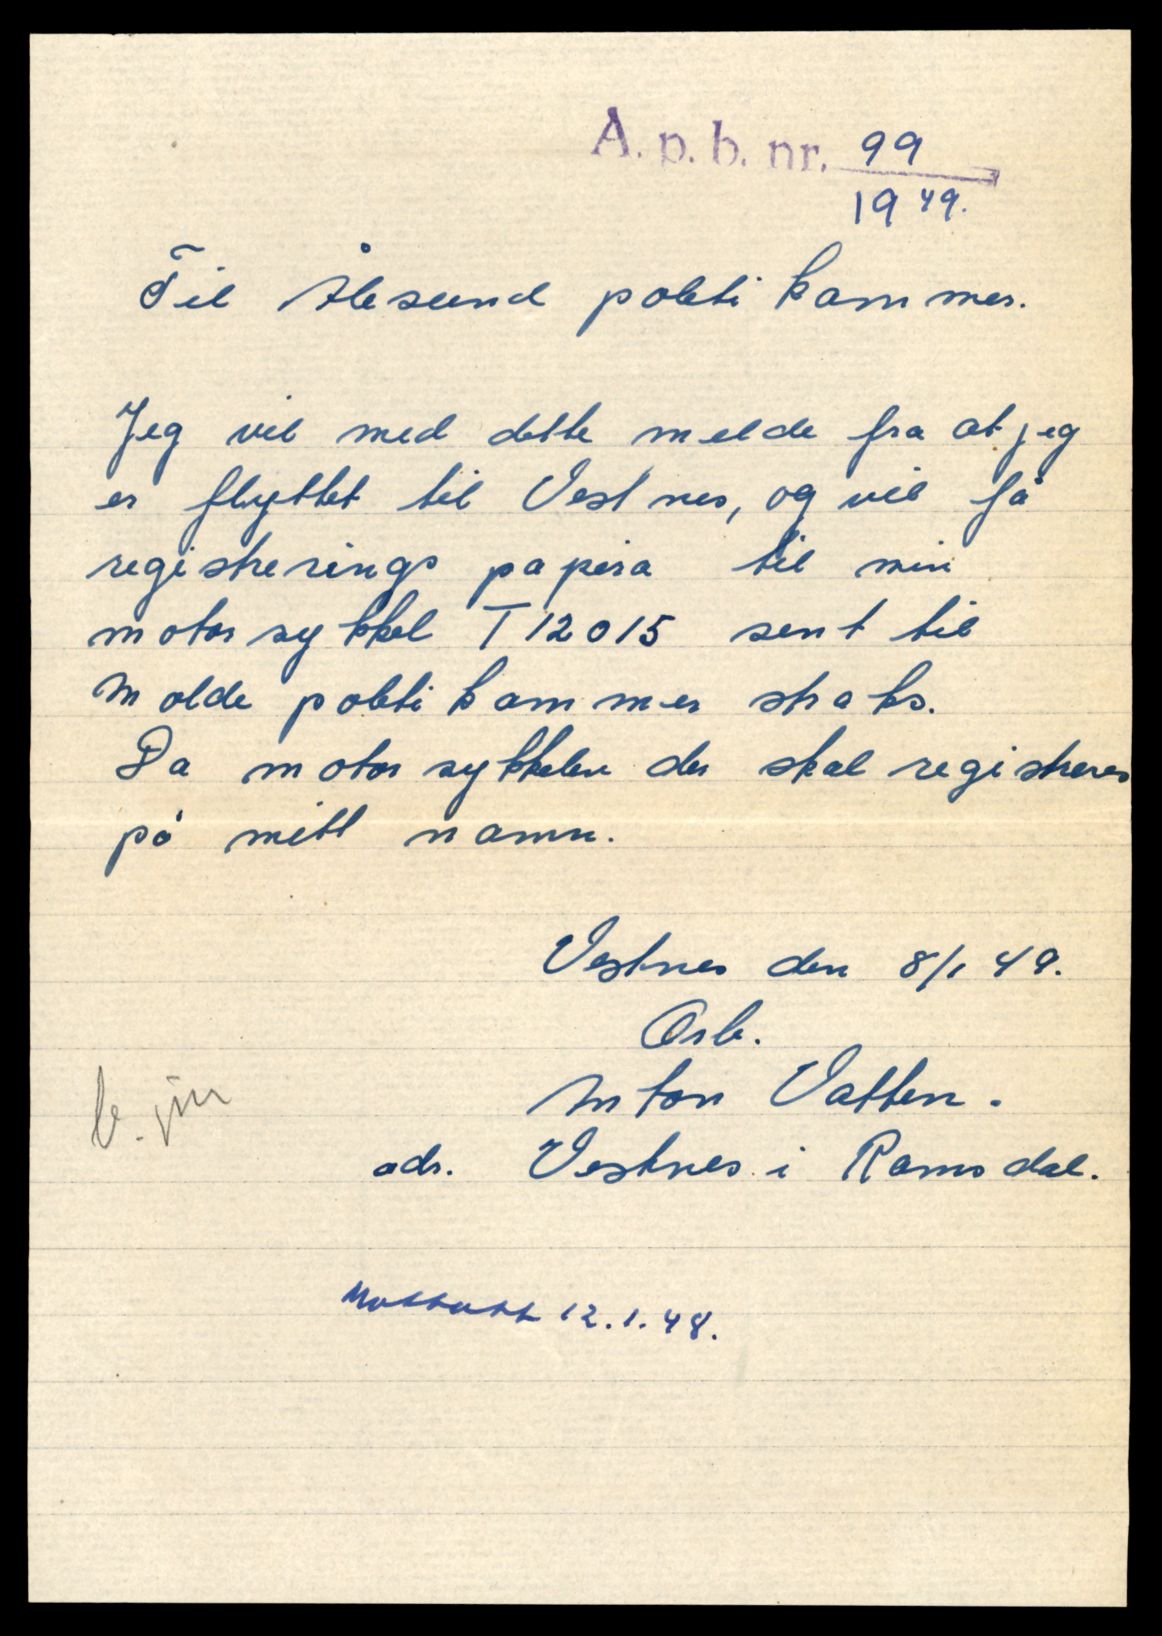 A. p. b. nr. 99
1949.
Til Ålesund politikammer.
Jeg vil med dette melde fra at jeg
er flyttet til Vestnes, og vil få
registrerings papira til min
motorsykkel T 12015 sent til
Molde politikammer straks.
Da motorsykkelen der skal registreres
på mitt namn.
Vestnes den 8/1 49.
Arb.
Anton Vatten.
adr. Vestnes i Ramsdal.
Mottatt 12.1.48.